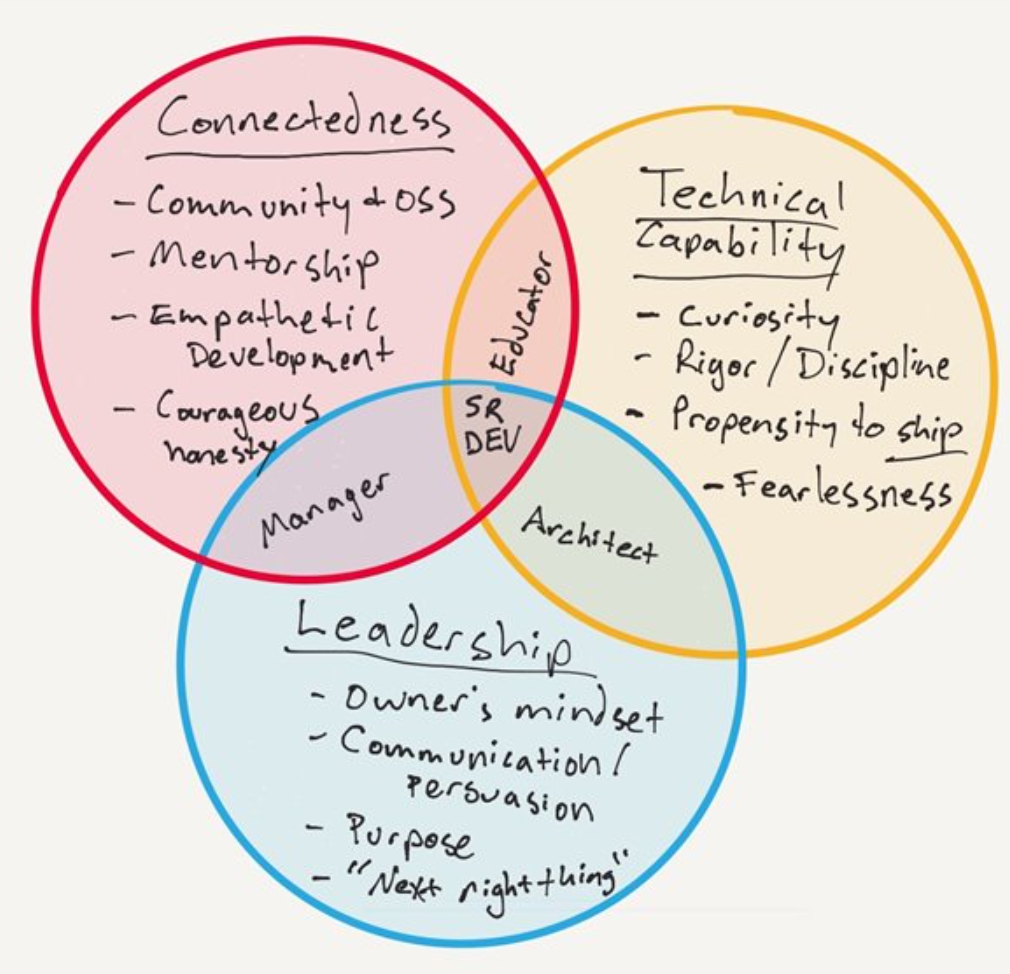 Connectedness
- Community & OSS
- Mentorship
- Empathetic
Development
- Courageous
honesty
Technical
Capability
- Curiosity
- Rigor / Discipline
- Propensity to ship
- Fearlessness
Educator
SR
DEV
Manager
Architect
Leadership
- Owner's mindset
- Communication /
Persuasion
- Purpose
- "Next right thing"